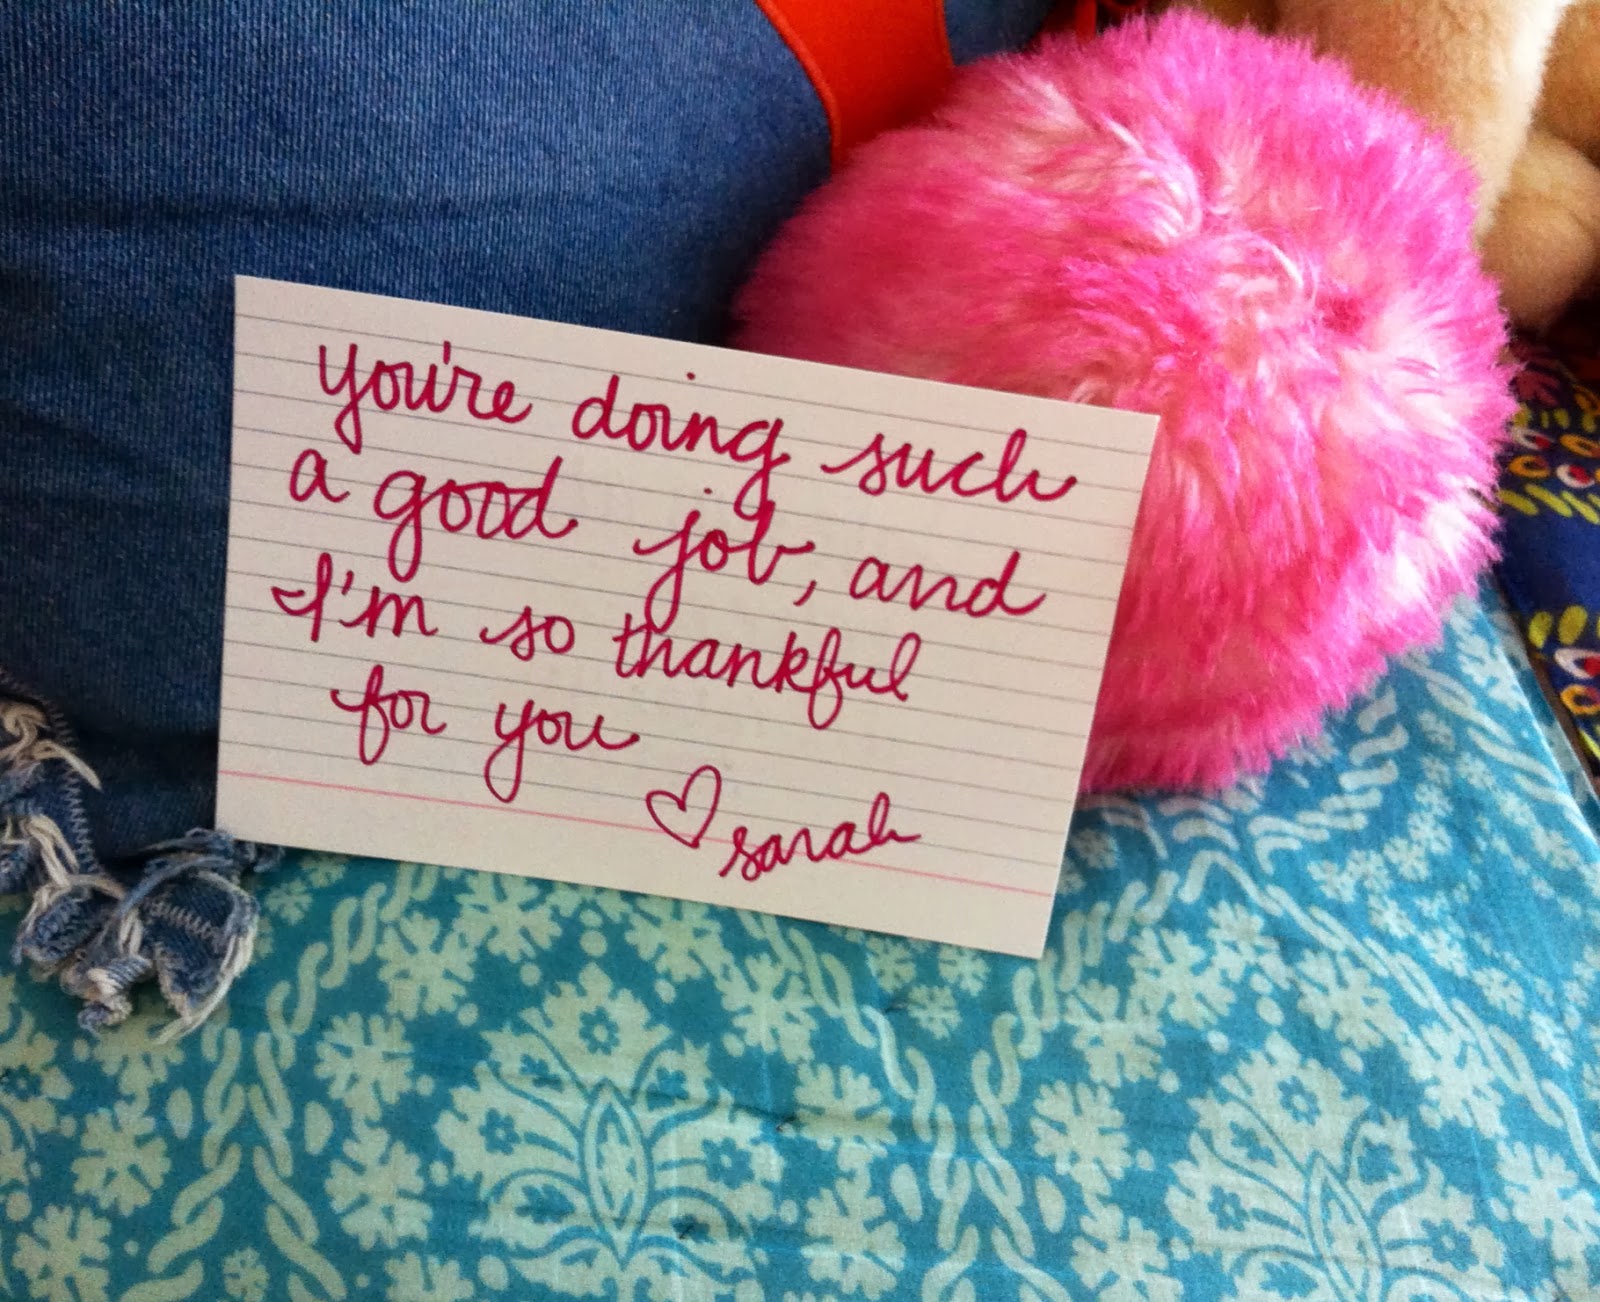 you're doing such
a good job, and
I'm so thankful
for you
♡ sarah